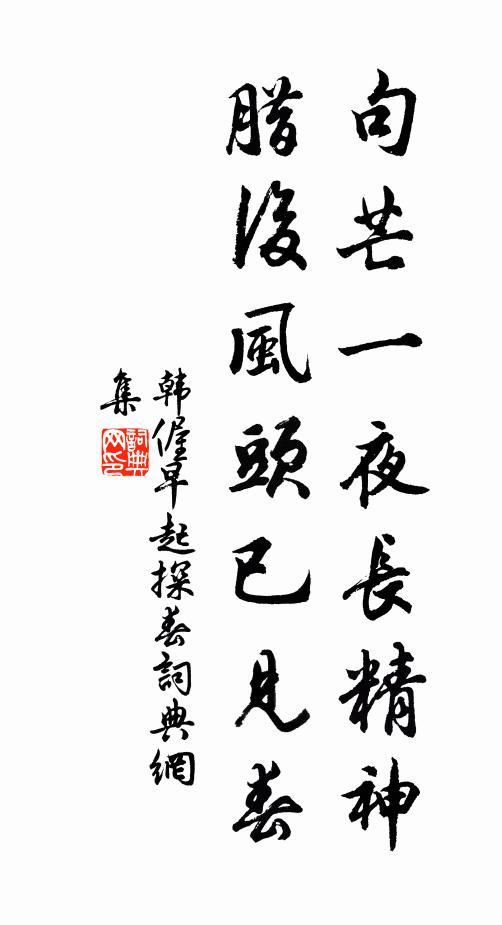 句芒一夜長精神
腊後風頭已見春
韩偓早起探春詞典網
集
詞典网印